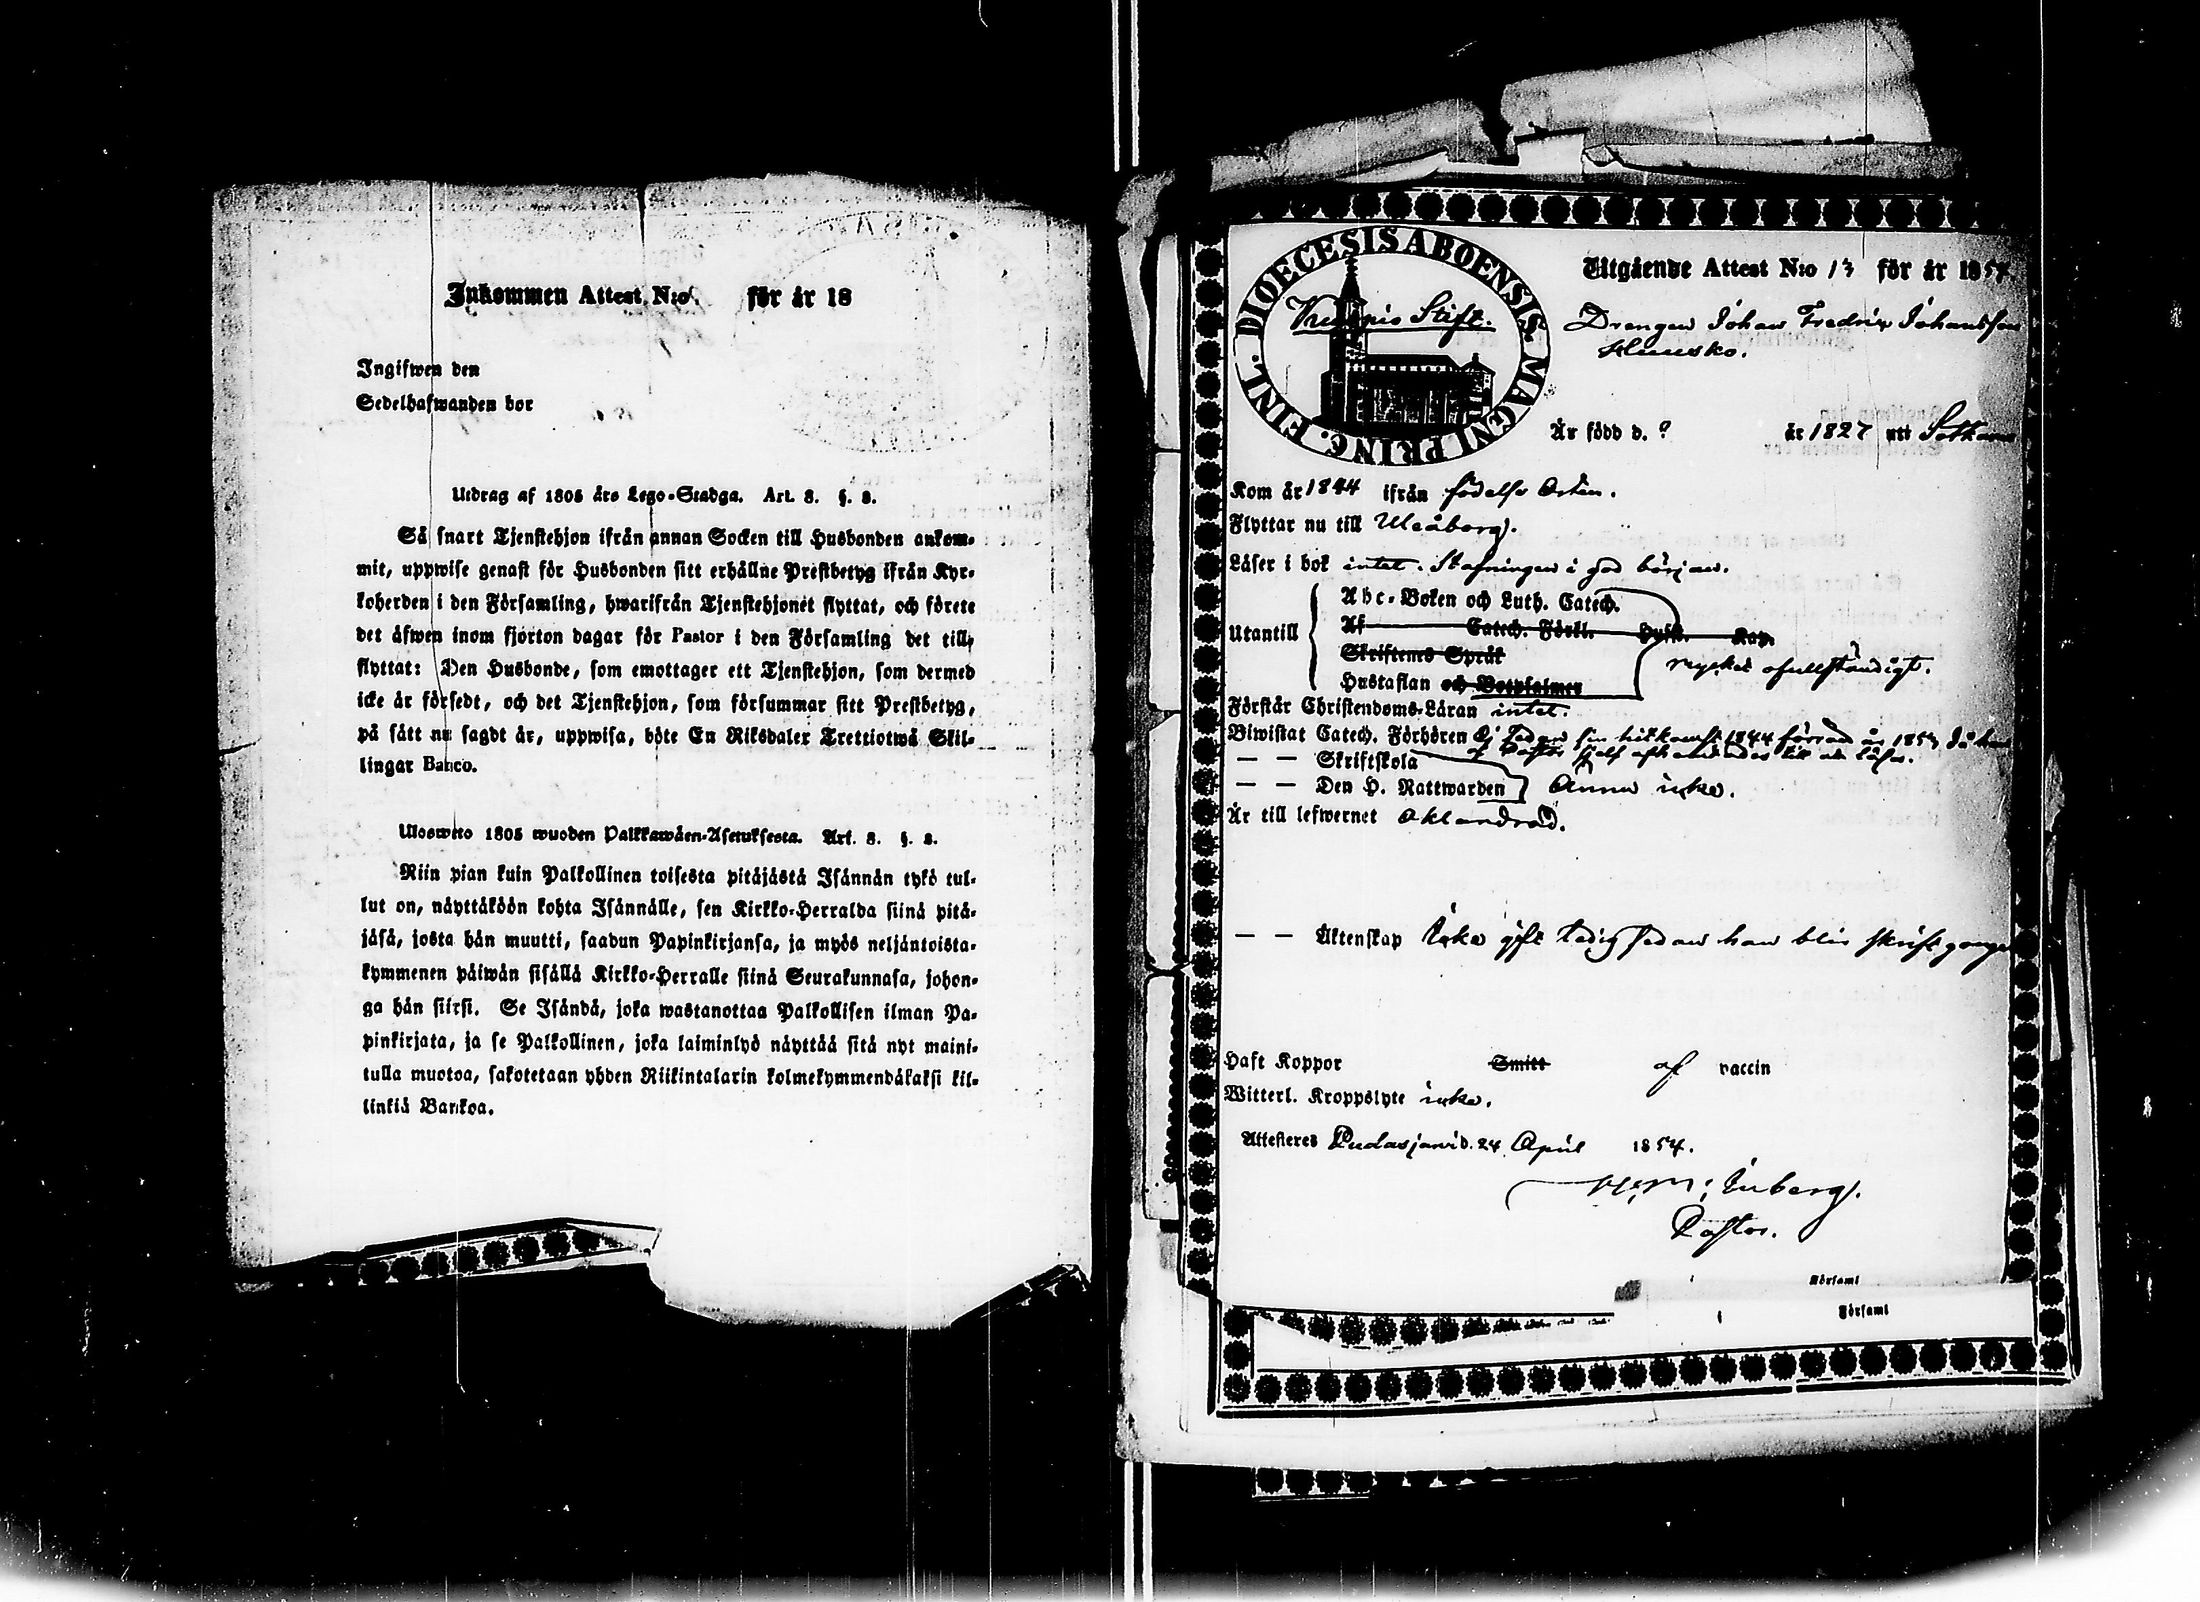 Inkommen Attest N:o för år 18
Ingifwen den
Sedelhafwanden bor
Utdrag af 1805 års Lego-Stadga. Art. 8. §. 8.
Så snart Tjenstehjon ifrån annan Socken till Husbonden ankom-
mit, uppwise genast för Husbonden sitt erhållne Prestbetyg ifrån Kyr-
koherden i den Församling, hwarifrån Tjenstehjonet flyttat, och förete
det äfwen inom fjorton dagar för Pastor i den Församling det till-
flyttat: Den Husbonde, som emottager ett Tjenstehjon, som dermed
icke är försedt, och det Tjenstehjon, som försummar sitt Prestbetyg,
på sätt nu sagdt är, uppwisa, böte En Riksdaler Trettiotwå Skil-
lingar Banco.
Ulosweto 1805 wuoden Palkkawäen-Asetuksesta. Art. 8. §. 8.
Niin pian kuin Palkollinen toisesta pitäjästä Isännän tykö tul-
lut on, näyttäköön kohta Isännälle, sen Kirkko-Herralda siinä pitä-
jäsä, josta hän muutti, saadun Papinkirjansa, ja myös neljäntoista-
kymmenen päiwän sisällä Kirkko-Herralle siinä Seurakunnasa, johon-
ga hän siirsi. Se Isändä, joka wastanottaa Palkollisen ilman Pa-
pinkirjata, ja se Palkollinen, joka laiminlyö näyttää sitä nyt maini-
tulla muotoa, sakotetaan yhden Riikintalarin kolmekymmendäkaksi kil-
linkiä Bankoa.
DIOECESIS ABOENSIS. MAGNI PRINC. FINL.
Kuopio Stift.
Utgående Attest N:o 13 för år 1854
Drengen Johan Fredric Johansson
Är född d. ? år 1827 uti Sotkamo
Kom år 1844 ifrån födelse Orten.
Flyttar nu till Uleåborg.
Läser i bok intet. Stafningen i god början.
Utantill
Abc-Boken och Luth. Catech.
Af Catech. Förkl. Hufst. Kap.
Skriftens Språk
Hustaflan och Botpsalmer
mycket ofullständigt.
Förstår Christendoms-Läran intet.
Biwistat Catech. Förhören Ej sedan sin hitkomst 1844 förräd år 1853 då han
af Pastor sjelf till att läsa.
— — Skriftskola
— — Den H. Nattwarden Ännu icke.
Är till lefwernet oklandrad.
— — Äktenskap Icke gift ledig sedan han blir skriftgången
Haft Koppor Smitt af vaccin
Witterl. Kroppslyte icke.
Attesteres Pudasjärvi d. 24 April 1854.
Pastor.
i Församl
i Församl